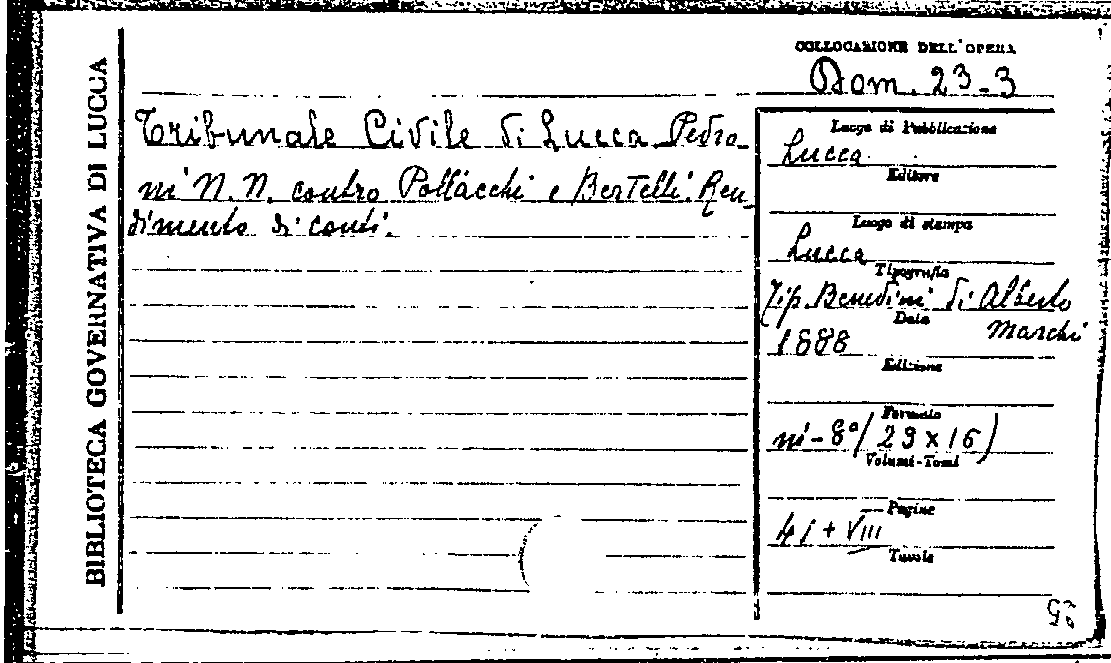 BIBLIOTECA GOVERNATIVA DI LUCCA
COLLOCAZIONE DELL'OPERA
Dom. 23-3
Tribunale Civile di Lucca Pedro-
ni N.N. contro Pollacchi e Bertelli. Ren-
dimento di conti.
Luogo di Pubblicazione
Lucca
Editore
Luogo di stampa
Lucca
Tipografia
Tip. Benedini di Alberto
Marchi
Data
1888
Edizione
Formato
in-8° (23 x 16)
Volumi-Tomi
Pagine
41 + VIII
Tavole